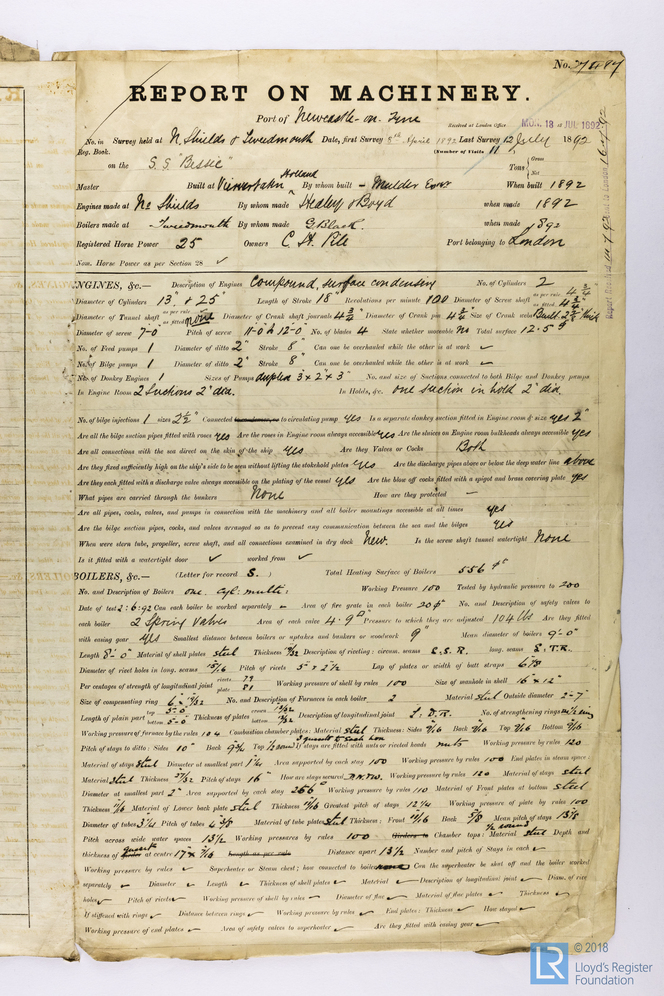 No. 27487
REPORT ON MACHINERY.
Port of Newcastle-on-Tyne
Received at London Office MON. 18 JUL 1892
No. in Survey held at N. Shields & Tweedmouth Date, first Survey 5th April 1892 Last Survey 12 July 1892
Reg. Book. (Number of Visits 11)
on the S.S. "Bessie" Tons { Gross Net
Master Built at Holland By whom built Mulder When built 1892
Engines made at No Shields By whom made Hedley & Boyd when made 1892
Boilers made at Tweedmouth By whom made G. Black. when made 1892
Registered Horse Power 25 Owners C. H. Pile Port belonging to London
Nom. Horse Power as per Section 28 ✓
ENGINES, &c.— Description of Engines Compound, surface condensing No. of Cylinders 2
Diameter of Cylinders 13" & 25" Length of Stroke 18" Revolutions per minute 100 Diameter of Screw shaft as per rule as fitted 4 3/4"
Diameter of Tunnel shaft as per rule as fitted none Diameter of Crank shaft journals 4 3/4" Diameter of Crank pin 4 3/4" Size of Crank webs Built 2 3/8" thick
Diameter of screw 7-0 Pitch of screw 11-0 & 12-0 No. of blades 4 State whether moveable No Total surface 12.5
No. of Feed pumps 1 Diameter of ditto 2" Stroke 8" Can one be overhauled while the other is at work ✓
No. of Bilge pumps 1 Diameter of ditto 2" Stroke 8" Can one be overhauled while the other is at work ✓
No. of Donkey Engines 1 Sizes of Pumps duplex 3" x 2" x 3" No. and size of Suctions connected to both Bilge and Donkey pumps
In Engine Room 2 Suctions 2" dia. In Holds, &c. one suction in hold 2" dia.
No. of bilge injections 1 sizes 2 1/2" Connected to circulating pump yes Is a separate donkey suction fitted in Engine room & size yes 2"
Are all the bilge suction pipes fitted with roses yes Are the roses in Engine room always accessible yes Are the sluices on Engine room bulkheads always accessible yes
Are all connections with the sea direct on the skin of the ship yes Are they Valves or Cocks Both
Are they fixed sufficiently high on the ship's side to be seen without lifting the stokehold plates yes Are the discharge pipes above or below the deep water line above
Are they each fitted with a discharge valve always accessible on the plating of the vessel yes Are the blow off cocks fitted with a spigot and brass covering plate yes
What pipes are carried through the bunkers None How are they protected —
Are all pipes, cocks, valves, and pumps in connection with the machinery and all boiler mountings accessible at all times yes
Are the bilge suction pipes, cocks, and valves arranged so as to prevent any communication between the sea and the bilges yes
When were stern tube, propeller, screw shaft, and all connections examined in dry dock New. Is the screw shaft tunnel watertight None
Is it fitted with a watertight door ✓ worked from ✓
BOILERS, &c.— (Letter for record S.) Total Heating Surface of Boilers 556
No. and Description of Boilers one. Cyl: multi: Working Pressure 100 Tested by hydraulic pressure to 200
Date of test 2:6:92 Can each boiler be worked separately – Area of fire grate in each boiler 20 No. and Description of safety valves to
each boiler 2 Spring Valves Area of each valve 4.9 Pressure to which they are adjusted 104 lbs Are they fitted
with easing gear yes Smallest distance between boilers or uptakes and bunkers or woodwork 9" Mean diameter of boilers 9'-0"
Length 8'-0" Material of shell plates steel Thickness 19/32 Description of riveting: circum. seams long. seams
Diameter of rivet holes in long. seams 13/16 Pitch of rivets Lap of plates or width of butt straps 6 7/8
Per centages of strength of longitudinal joint rivets 79 plate 81 Working pressure of shell by rules 100 Size of manhole in shell 16" x 12"
Size of compensating ring No. and Description of Furnaces in each boiler 2 Material steel Outside diameter 2-7"
Length of plain part top 5-0" bottom 5-0" Thickness of plates crown bottom Description of longitudinal joint No. of strengthening rings
Working pressure of furnace by the rules 104 Combustion chamber plates: Material steel Thickness: Sides 9/16 Back 9/16 Top 9/16 Bottom 9/16
Pitch of stays to ditto: Sides 10" Back 9 3/4 Top If stays are fitted with nuts or riveted heads nuts Working pressure by rules 120
Material of stays steel Diameter at smallest part 1 1/4 Area supported by each stay 100 Working pressure by rules 100 End plates in steam space:
Material steel Thickness 27/32 Pitch of stays 16" How are stays secured D.N.&W. Working pressure by rules 120 Material of stays steel
Diameter at smallest part 2" Area supported by each stay 266 Working pressure by rules 110 Material of Front plates at bottom steel
Thickness Material of Lower back plate steel Thickness Greatest pitch of stays 12 1/4 Working pressure of plate by rules 100
Diameter of tubes 3 1/4 Pitch of tubes 4 5/8 Material of tube plates steel Thickness: Front Back 5/8 Mean pitch of stays
Pitch across wide water spaces 13 1/2 Working pressures by rules 100 Girders to Chamber tops: Material steel Depth and
thickness of gusset at centre 17 x 9/16 Length as per rule Distance apart 13 1/2 Number and pitch of Stays in each ✓
Working pressure by rules ✓ Superheater or Steam chest; how connected to boiler none Can the superheater be shut off and the boiler worked
separately ✓ Diameter ✓ Length ✓ Thickness of shell plates ✓ Material ✓ Description of longitudinal joint ✓ Diam. of rivet
holes ✓ Pitch of rivets ✓ Working pressure of shell by rules ✓ Diameter of flue ✓ Material of flue plates ✓ Thickness ✓
If stiffened with rings ✓ Distance between rings ✓ Working pressure by rules ✓ End plates: Thickness ✓ How stayed ✓
Working pressure of end plates ✓ Area of safety valves to superheater ✓ Are they fitted with easing gear ✓
© 2018
LR
Lloyd's Register
Foundation